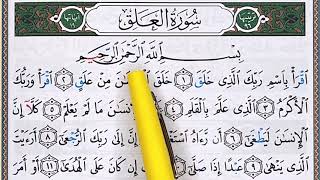 سُورَةُ العَلَقِ
بِسْمِ اللَّهِ الرَّحْمَٰنِ الرَّحِيمِ
اقْرَأْ بِاسْمِ رَبِّكَ الَّذِي خَلَقَ ١ خَلَقَ مِنْ عَلَقٍ ٢ اقْرَأْ وَرَبُّكَ
الْأَكْرَمُ ٣ الَّذِي عَلَّمَ بِالْقَلَمِ ٤ مَا لَمْ يَعْلَمْ ٥ كَلَّا إِنَّ
الْإِنسَانَ لَيَطْغَىٰ ٦ أَن رَّآهُ إِلَىٰ رَبِّكَ الرُّجْعَىٰ ٨ أَرَأَيْتَ
الَّذِي يَنْهَىٰ ٩ عَبْدًا إِذَا صَلَّىٰ إِن كَانَ عَلَى الْهُدَىٰ ١١ أَوْ